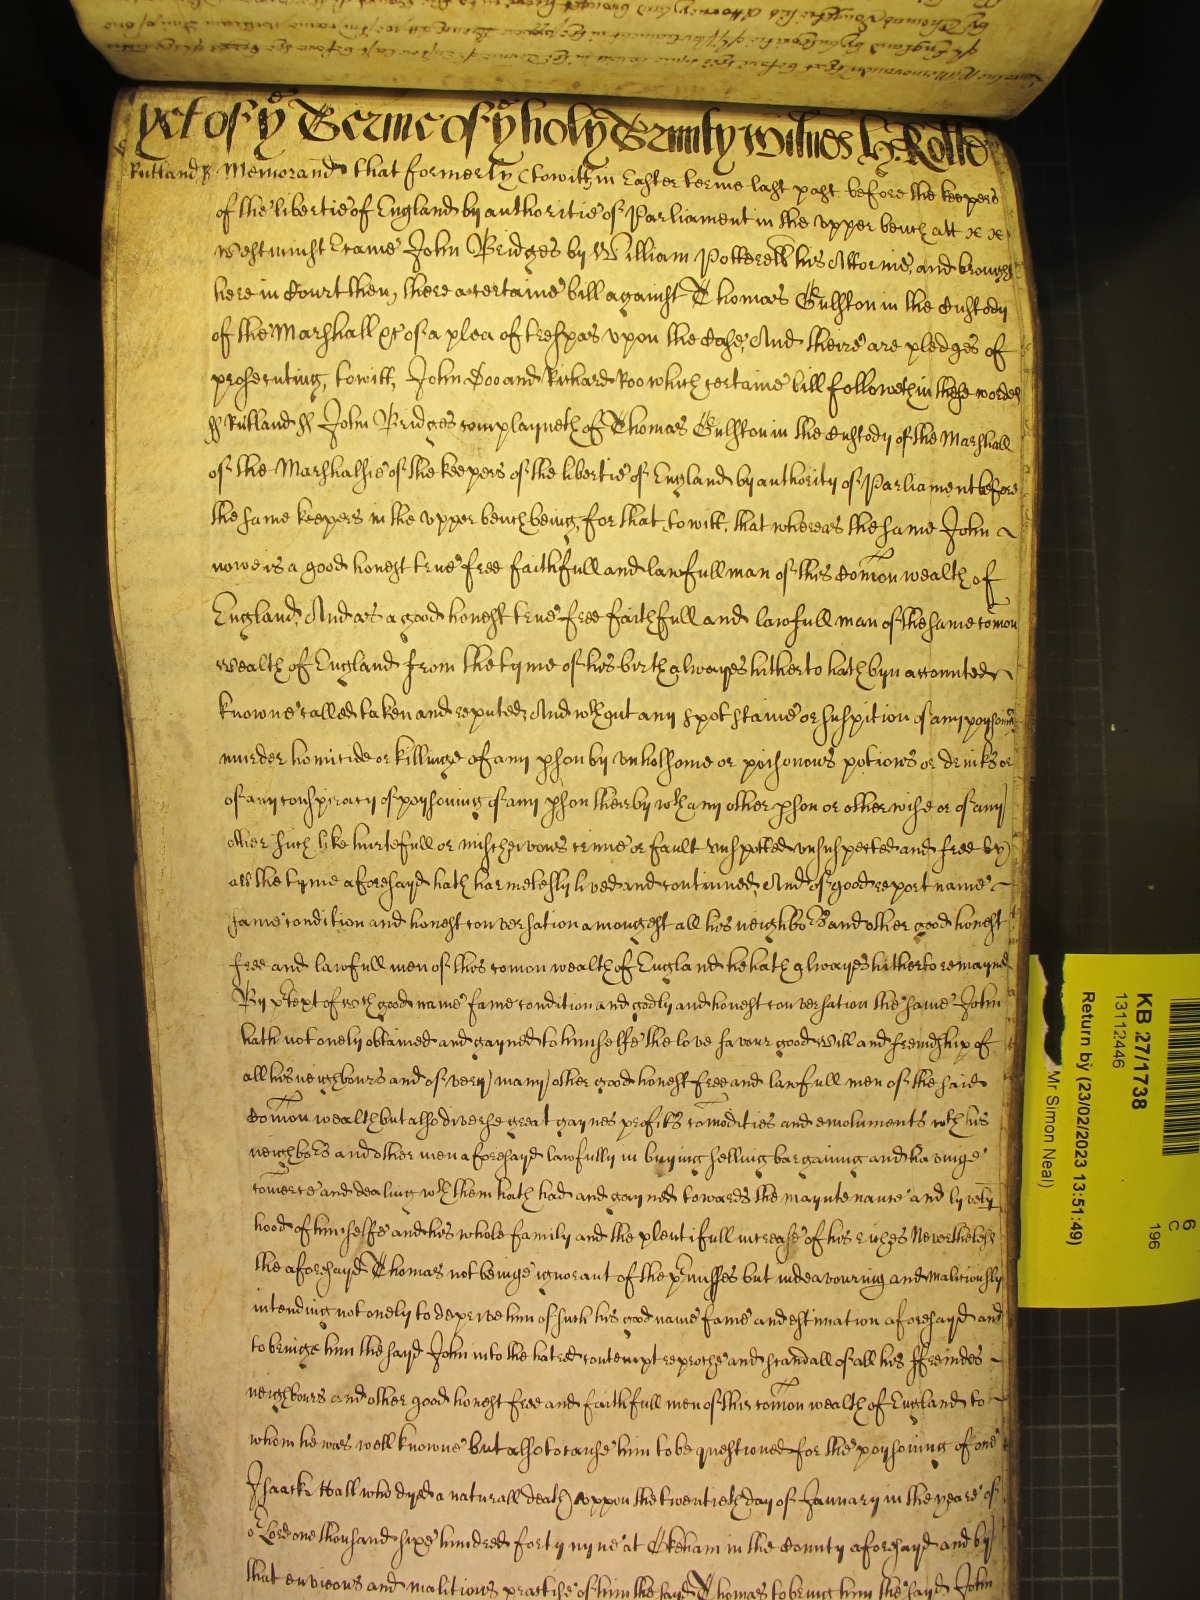 yet of yͤ Terme of yͤ holy Trinity Witnes H: Rolle
Rutland ss Memorand that formerly (towitt, in Easter terme last past before the keepers
of the libertie of England by authoritie of Parliament in the upper bench att x x
Westminst came John Bridges by William Potterell his Attornie, and brought
here in Court then, there a certaine bill against Thomas Gulston in the Custody
of the Marshall &c of a plea of trespas upon the Case, And theire are pledges of
prosecuting, towitt, John Doo and Richard Roo which certaine bill followeth in these wordes
ss Rutland ss John Bridges complayneth of Thomas Gulston in the Custody of the Marshall
of the Marshalsie of the keepers of the libertie of England by authority of Parliament before
the same keepers in the upper bench being, for that, towitt, that whereas the same John
nowe is a good honest true free faithfull and lawfull man of this Comon wealth of
England, And as a good honest true free faithfull and lawfull man of the same comon
wealth of England from the tyme of his birth alwayes hitherto hath byn accounted
knowne called taken and reputed, And wth out any spot staine or suspition of any poysoning
murder homicide or killinge of any pson by unholsome or poisonous potions or drinks or
of any conspiracy of poysoning of any pson therby wth any other pson or otherwise or of any
other such like hurtefull or mischevous crime or fault unspotted unsuspected and free by
all the tyme aforesayd hath harmelesly lived and continued, And of good report name
fame condition and honest conversation amongest all his neighbors and other good honest
free and lawfull men of this comon wealth of England he hath alwayes hitherto remayned
By ptext of wch good name fame condition and godly and honest conversation the same John
hath not onely obtained and gayned to himselfe the love favour good will and freindship of
all his neighbours and of very many other good honest free and lawfull men of the said
Comon wealth but also diverse great gaynes profitts comodities and emoluments wth his
neighbors and other men aforesayd lawfully in buying selling bargaining and havinge
comerce and dealing wth them hath had and gayned towards the mayntenance and lively
hood of himselfe and his whole family and the plentifull increase of his riches Neverthelesse
the aforesayd Thomas not beinge ignorant of the pmisses but indeavouring and maliciously
intending not onely to deprive him of such his good name fame and estimation aforesayd and
to bringe him the sayd John into the hatred contempt reproche and scandall of all his ffreindes
neighbours and other good honest free and faithfull men of this comon wealth of England to
whom he was well knowne but also to cause him to be questioned for the poysoning of one
Isaack Hall who dyed a naturall death uppon the twentieth day of January in the yeare of
or Lord one thousand sixe hundred forty nyne at Okeham in the County aforesayd and by
that envious and malitious practise of him the sayd Thomas to bring him the sayd John
KB 27/1738
13112446
Return by (23/02/2023 13:51:49)
Mr Simon Neal)
6
C
196